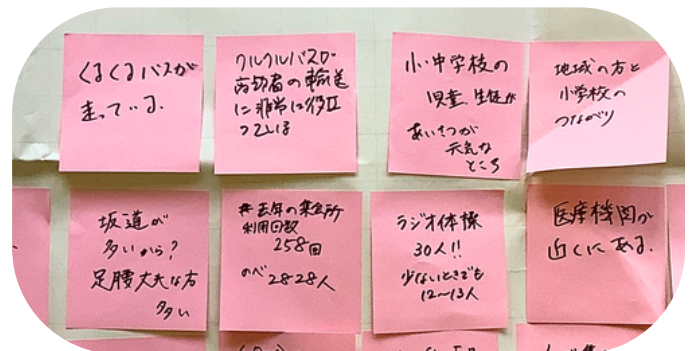 くるくるバスが
走っている.
クルクルバスが
高齢者の輸送
に非常に役立
っている
小・中学校の
児童、生徒が
あいさつが
元気な
ところ
地域の方と
小学校の
つながり
坂道が
多いから?
足腰丈夫な方
多い
去年の集会所
利用回数
258回
のべ2828人
ラジオ体操
30人!!
少ないときでも
12〜13人
医療機関が
近くにある.